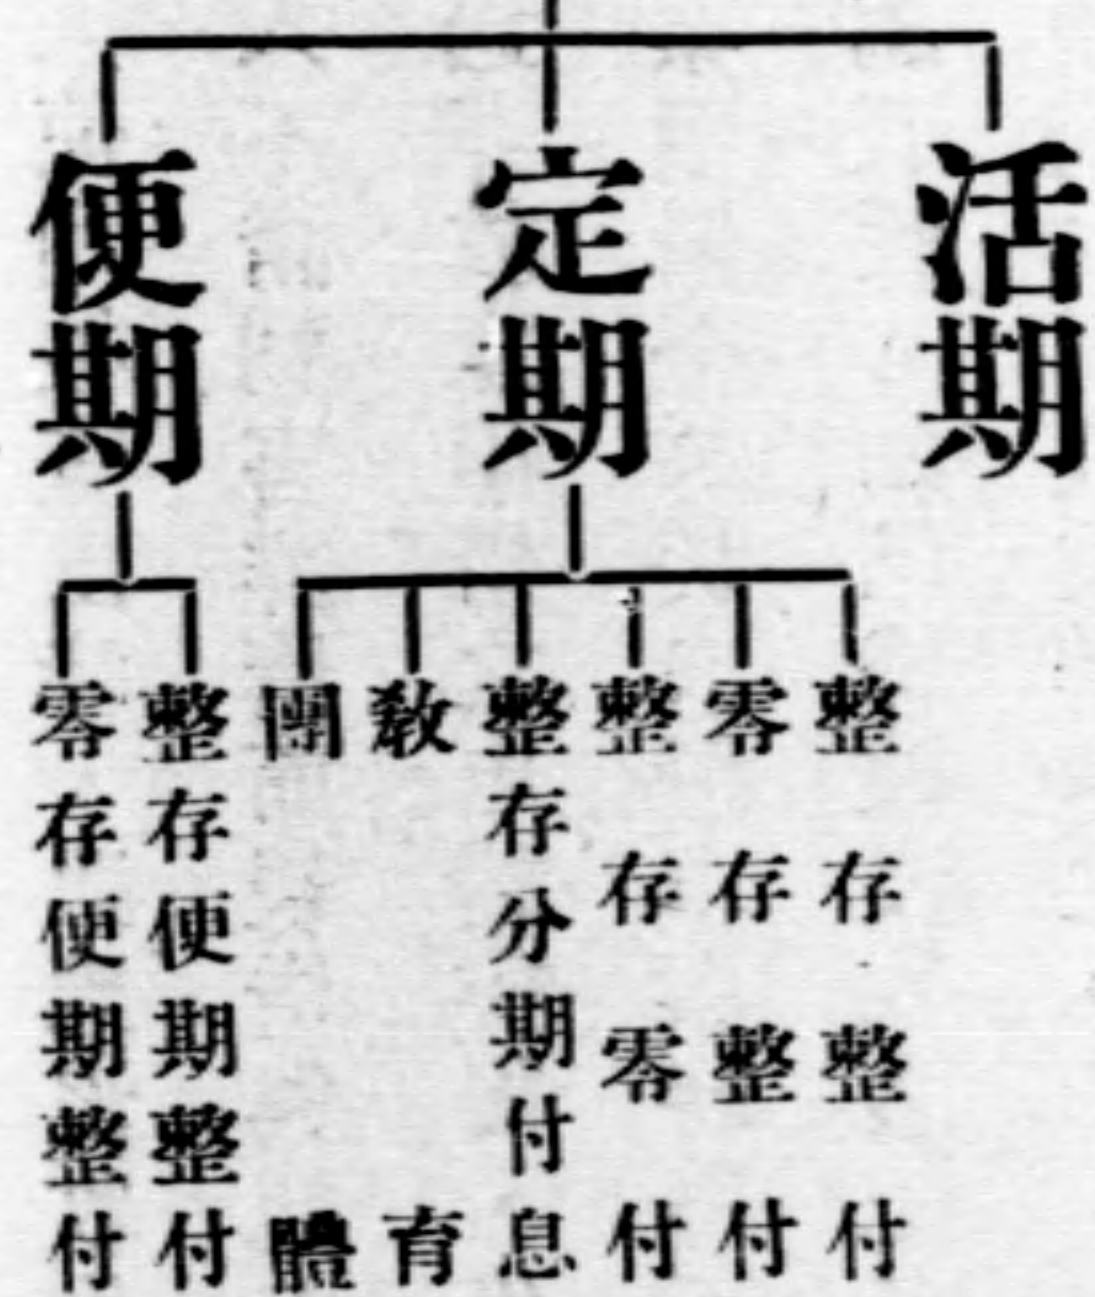 活期
定期
便期
整存整付
零存整付
整存零付
整存分期付息
教育
團體
整存便期整付
零存便期整付